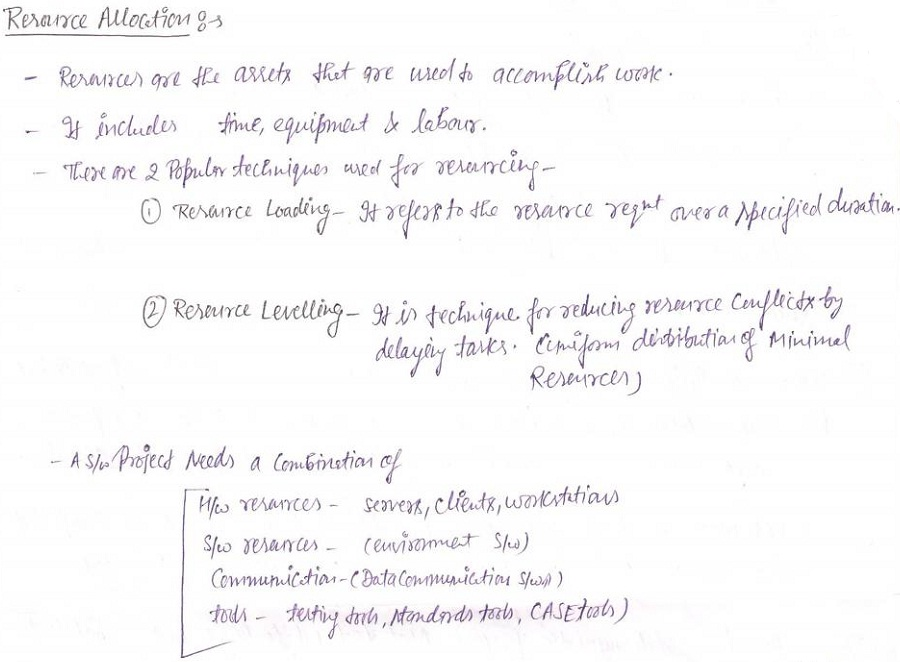 Resource Allocation :-
- Resources are the assets that are used to accomplish work.
- It includes time, equipment & labour.
- There are 2 Popular techniques used for resourcing -
① Resource Loading - It refers to the resource reqmt over a specified duration.
② Resource Levelling - It is technique for reducing resource Conflicts by
delaying tasks. (uniform distribution of Minimal
Resources)
- A S/w Project Needs a Combination of
H/w resources - servers, clients, workstations
S/w resources - (environment S/w)
Communication - (Data Communication S/ws)
tools - testing tools, standards tools, CASE tools)